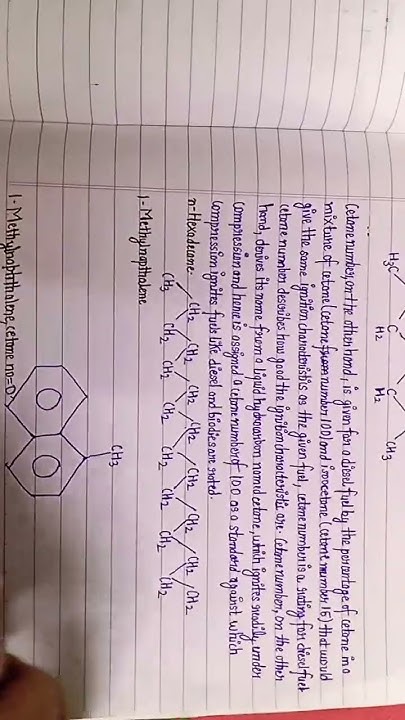 H₃C C C CH₃
H₂ H₂
Cetane number, on the other hand, is given for a diesel fuel by the percentage of cetane in a
mixture of cetane (cetane number 100) and isocetane (cetane number 15) that would
give the same ignition characteristics as the given fuel, cetane number is a rating for diesel fuel
cetane number describes how good the ignition characteristic are. Cetane number, on the other
hand, derives its name from a liquid hydrocarbon named cetane, which ignites readily under
compression and hence is assigned a cetane number of 100 as a standard against which
compression ignites fuels like diesel and biodiesel are rated.
n-Hexadecane
CH₂ CH₂ CH₂ CH₂ CH₂ CH₂ CH₂ CH₂
CH₃ CH₂ CH₂ CH₂ CH₂ CH₂ CH₂ CH₂
1-Methylnapthalene
CH₃
1-Methylnaphthalene, cetane no=0